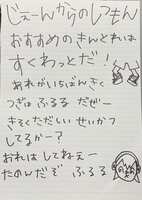 じぇーんからのしつもん
おすすめのきんとれは
すくわっとだ！
あれがいちばんきく
つぎはふるる だぜー
きそくただしい せいかつ
してるかー？
おれは してねぇー
たのんだぞ ふるる